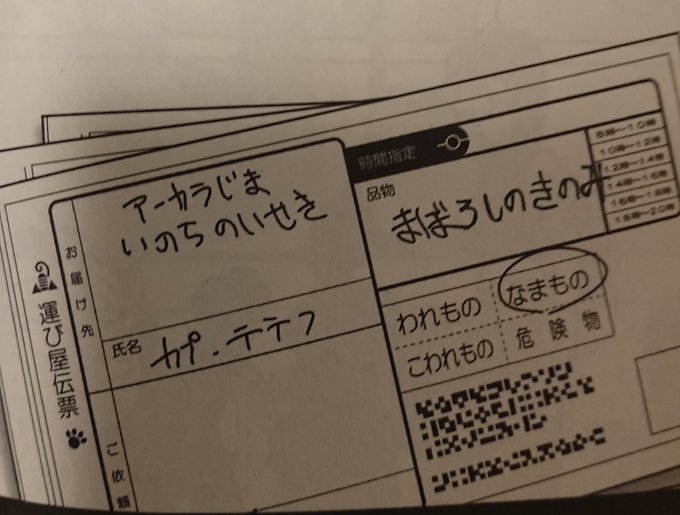 運び屋伝票
お届け先
アーカラじま
いのちのいせき
氏名
カプ・テテフ
ご依頼
時間指定
品物
まぼろしのきのみ
8時～10時
10時～12時
12時～14時
14時～16時
16時～18時
18時～20時
われもの
なまもの
こわれもの
危険物